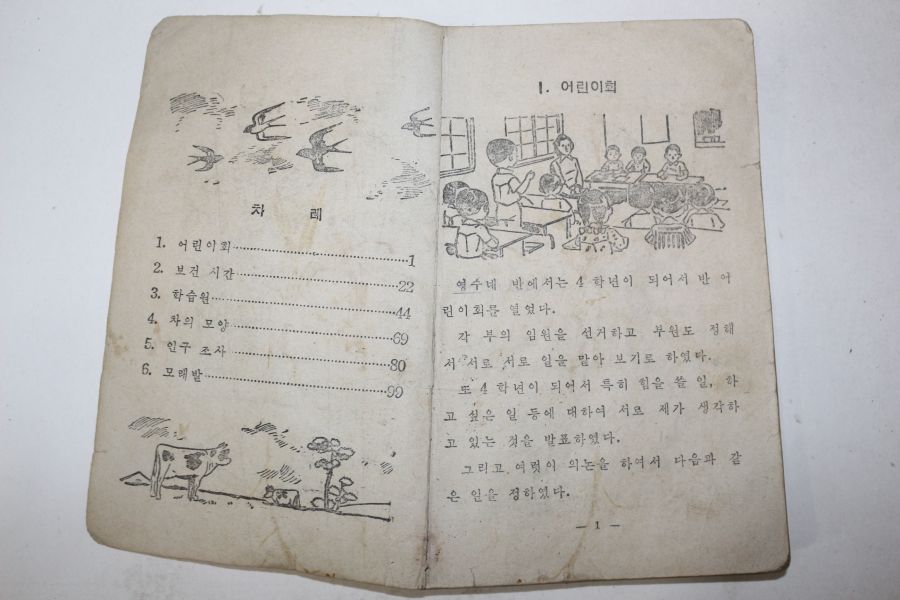 차 례
1. 어린이회 1
2. 보건 시간 22
3. 학습원 44
4. 차의 모양 69
5. 인구 조사 80
6. 모래밭 99
1. 어린이회
영수네 반에서는 4 학년이 되어서 반 어
린이회를 열었다.
각 부의 임원을 선거하고 부원도 정해
서 서로 서로 일을 맡아 보기로 하였다.
또 4 학년이 되어서 특히 힘을 쓸 일, 하
고 싶은 일 등에 대하여 서로 제가 생각하
고 있는 것을 발표하였다.
그리고 여럿이 의논을 하여서 다음과 같
은 일을 정하였다.
— 1 —